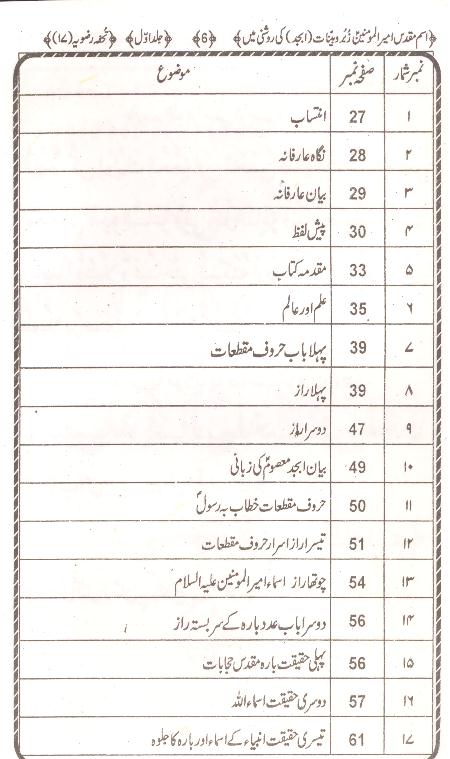 ﴿اسم مقدس امیرالمومنینؑ زبر و بینات (ابجد) کی روشنی میں﴾ ﴿6﴾ ﴿جلد اوّل﴾ ﴿تحفہ رضویہ (۱۷)﴾
نمبر شمار صفحہ نمبر موضوع
۱ 27 انتساب
۲ 28 نگاہ عارفانہ
۳ 29 بیان عارفانہ
۴ 30 پیش لفظ
۵ 33 مقدمہ کتاب
۶ 35 علم اور عالم
۷ 39 پہلا باب حروف مقطعات
۸ 39 پہلا راز
۹ 47 دوسرا راز
۱۰ 49 بیان ابجد معصومؑ کی زبانی
۱۱ 50 حروف مقطعات خطاب بہ رسولؐ
۱۲ 51 تیسرا راز اسرار حروف مقطعات
۱۳ 54 چوتھا راز اسماء امیرالمومنین علیہ السلام
۱۴ 56 دوسرا باب عدد بارہ کے سربستہ راز
۱۵ 56 پہلی حقیقت بارہ مقدس حجابات
۱۶ 57 دوسری حقیقت اسماء اللہ
۱۷ 61 تیسری حقیقت انبیاء کے اسماء اور بارہ کا جلوہ